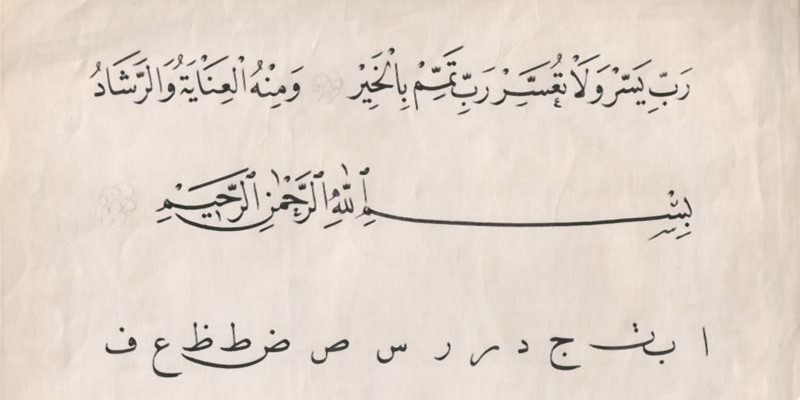 رَبِّ يَسِّرْ وَلَاْ تُعَسِّرْ رَبِّ تَمِّمْ بِالْخَيْرْ وَمِنْهُ الْعِنَايَةُ وَالرَّشَادُ
بِسْمِ اللّٰهِ الرَّحْمٰنِ الرَّحِيمِ
ا ب ت ج د ر ر س ص ض ط ظ ع ف